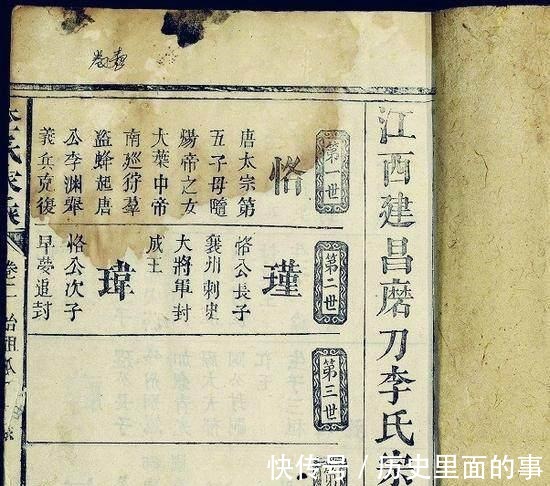 江西建昌磨刀李氏
第一世
恪
唐太宗第
五子母隨
煬帝之女
大業中帝
南廵狩羣
盜蜂起唐
公李淵舉
義兵克復
第二世
瑾
恪公長子
襄州刺史
大將軍封
成王
瑋
恪公次子
早夢追封
第三世
第
快传号 / 历史里面的事